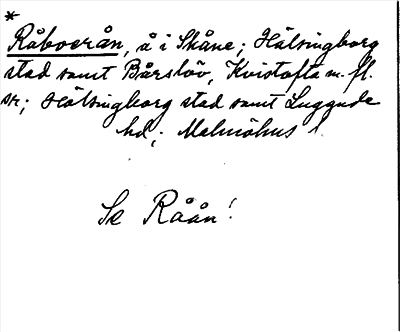 *
Råboerån, å i Skåne; Hälsingborg
stad samt Bårslöv, Kvistofta m. fl.
sn; Hälsingborg stad samt Luggude
hd; Malmöhus l.
Se Råån!